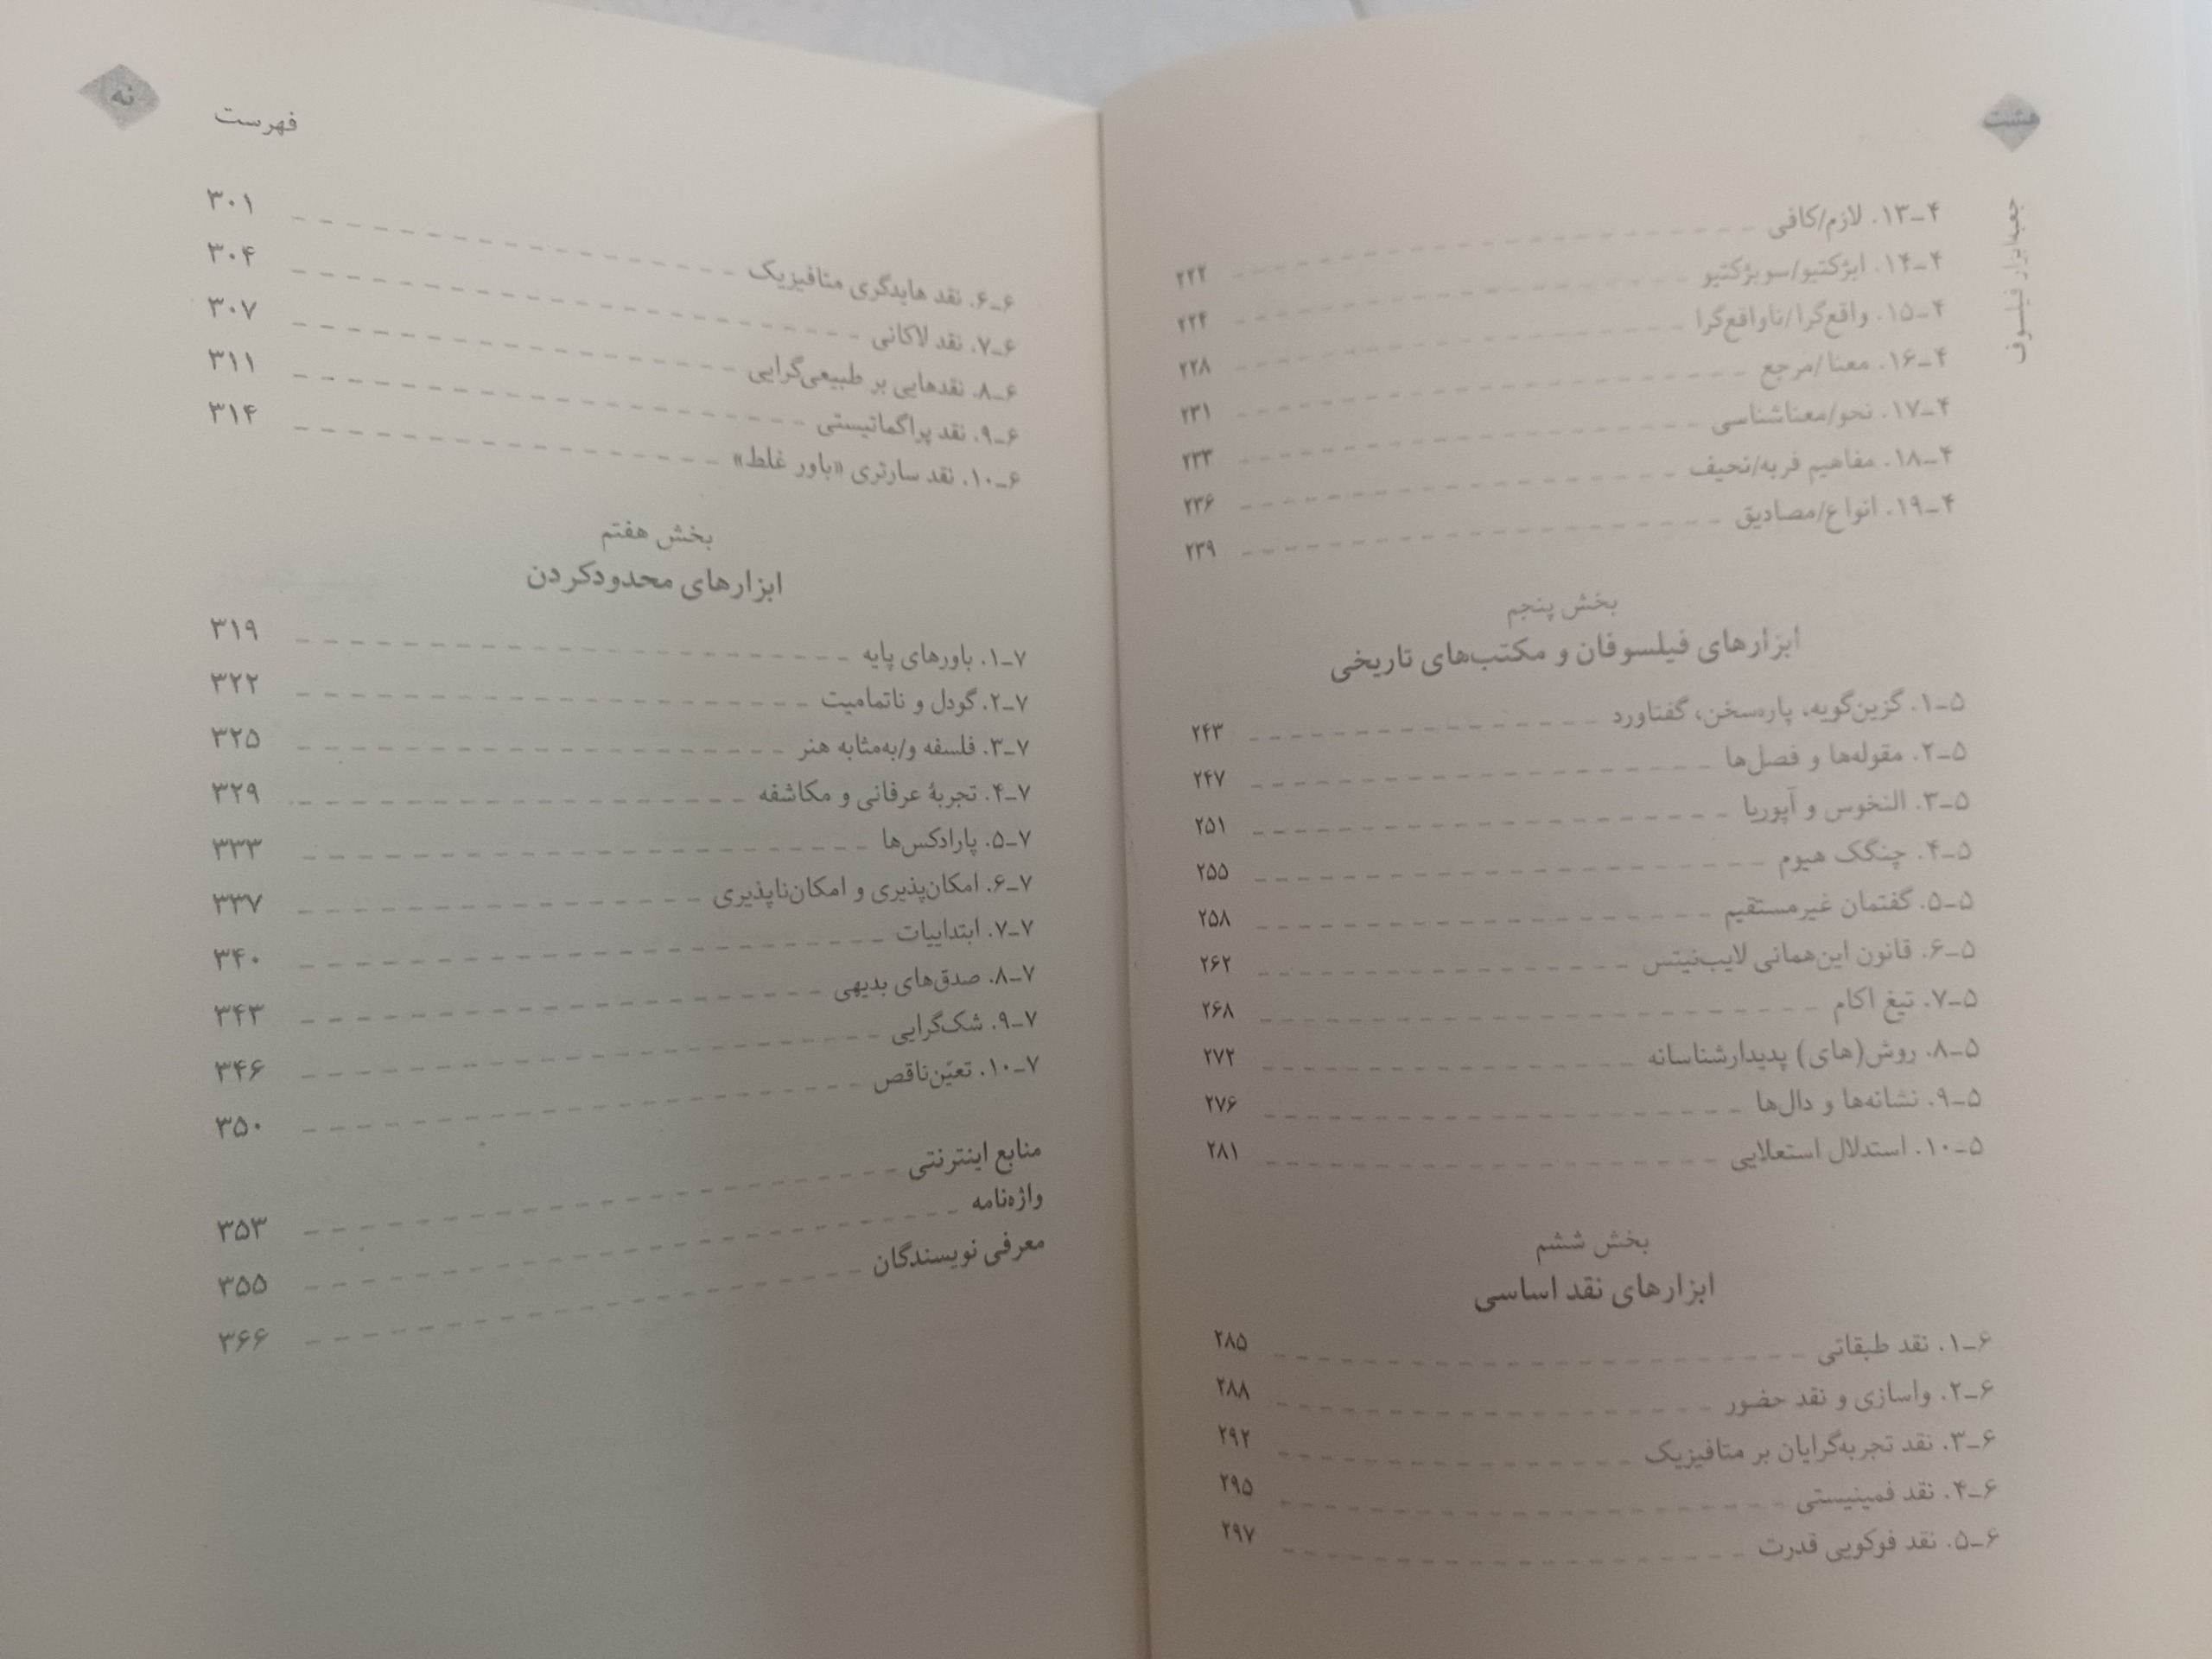 هشت
جعبه‌ابزار فیلسوف
۴ـ۱۳. لازم/کافی ۲۲۲
۴ـ۱۴. ابژکتیو/سوبژکتیو ۲۲۴
۴ـ۱۵. واقع‌گرا/ناواقع‌گرا ۲۲۸
۴ـ۱۶. معنا/مرجع ۲۳۱
۴ـ۱۷. نحو/معناشناسی ۲۳۳
۴ـ۱۸. مفاهیم فربه/نحیف ۲۳۶
۴ـ۱۹. انواع/مصادیق ۲۳۹
بخش پنجم
ابزارهای فیلسوفان و مکتب‌های تاریخی
۵ـ۱. گزین‌گویه، پاره‌سخن، گفتاورد ۲۴۳
۵ـ۲. مقوله‌ها و فصل‌ها ۲۴۷
۵ـ۳. النخوس و آپوریا ۲۵۱
۵ـ۴. چنگک هیوم ۲۵۵
۵ـ۵. گفتمان غیرمستقیم ۲۵۸
۵ـ۶. قانون این‌همانی لایب‌نیتس ۲۶۲
۵ـ۷. تیغ اکام ۲۶۸
۵ـ۸. روش(های) پدیدارشناسانه ۲۷۲
۵ـ۹. نشانه‌ها و دال‌ها ۲۷۶
۵ـ۱۰. استدلال استعلایی ۲۸۱
بخش ششم
ابزارهای نقد اساسی
۶ـ۱. نقد طبقاتی ۲۸۵
۶ـ۲. واسازی و نقد حضور ۲۸۸
۶ـ۳. نقد تجربه‌گرایان بر متافیزیک ۲۹۲
۶ـ۴. نقد فمینیستی ۲۹۵
۶ـ۵. نقد فوکویی قدرت ۲۹۷
فهرست نه
۶ـ۶. نقد هایدگری متافیزیک ۳۰۱
۶ـ۷. نقد لاکانی ۳۰۴
۶ـ۸. نقدهایی بر طبیعی‌گرایی ۳۰۷
۶ـ۹. نقد پراگماتیستی ۳۱۱
۶ـ۱۰. نقد سارتری «باور غلط» ۳۱۴
بخش هفتم
ابزارهای محدودکردن
۷ـ۱. باورهای پایه ۳۱۹
۷ـ۲. گودل و ناتمامیت ۳۲۲
۷ـ۳. فلسفه و/به‌مثابه هنر ۳۲۵
۷ـ۴. تجربهٔ عرفانی و مکاشفه ۳۲۹
۷ـ۵. پارادکس‌ها ۳۳۳
۷ـ۶. امکان‌پذیری و امکان‌ناپذیری ۳۳۷
۷ـ۷. ابتداییات ۳۴۰
۷ـ۸. صدق‌های بدیهی ۳۴۳
۷ـ۹. شک‌گرایی ۳۴۶
۷ـ۱۰. تعیّن‌ناقص ۳۵۰
منابع اینترنتی ۳۵۳
واژه‌نامه ۳۵۵
معرفی نویسندگان ۳۶۶